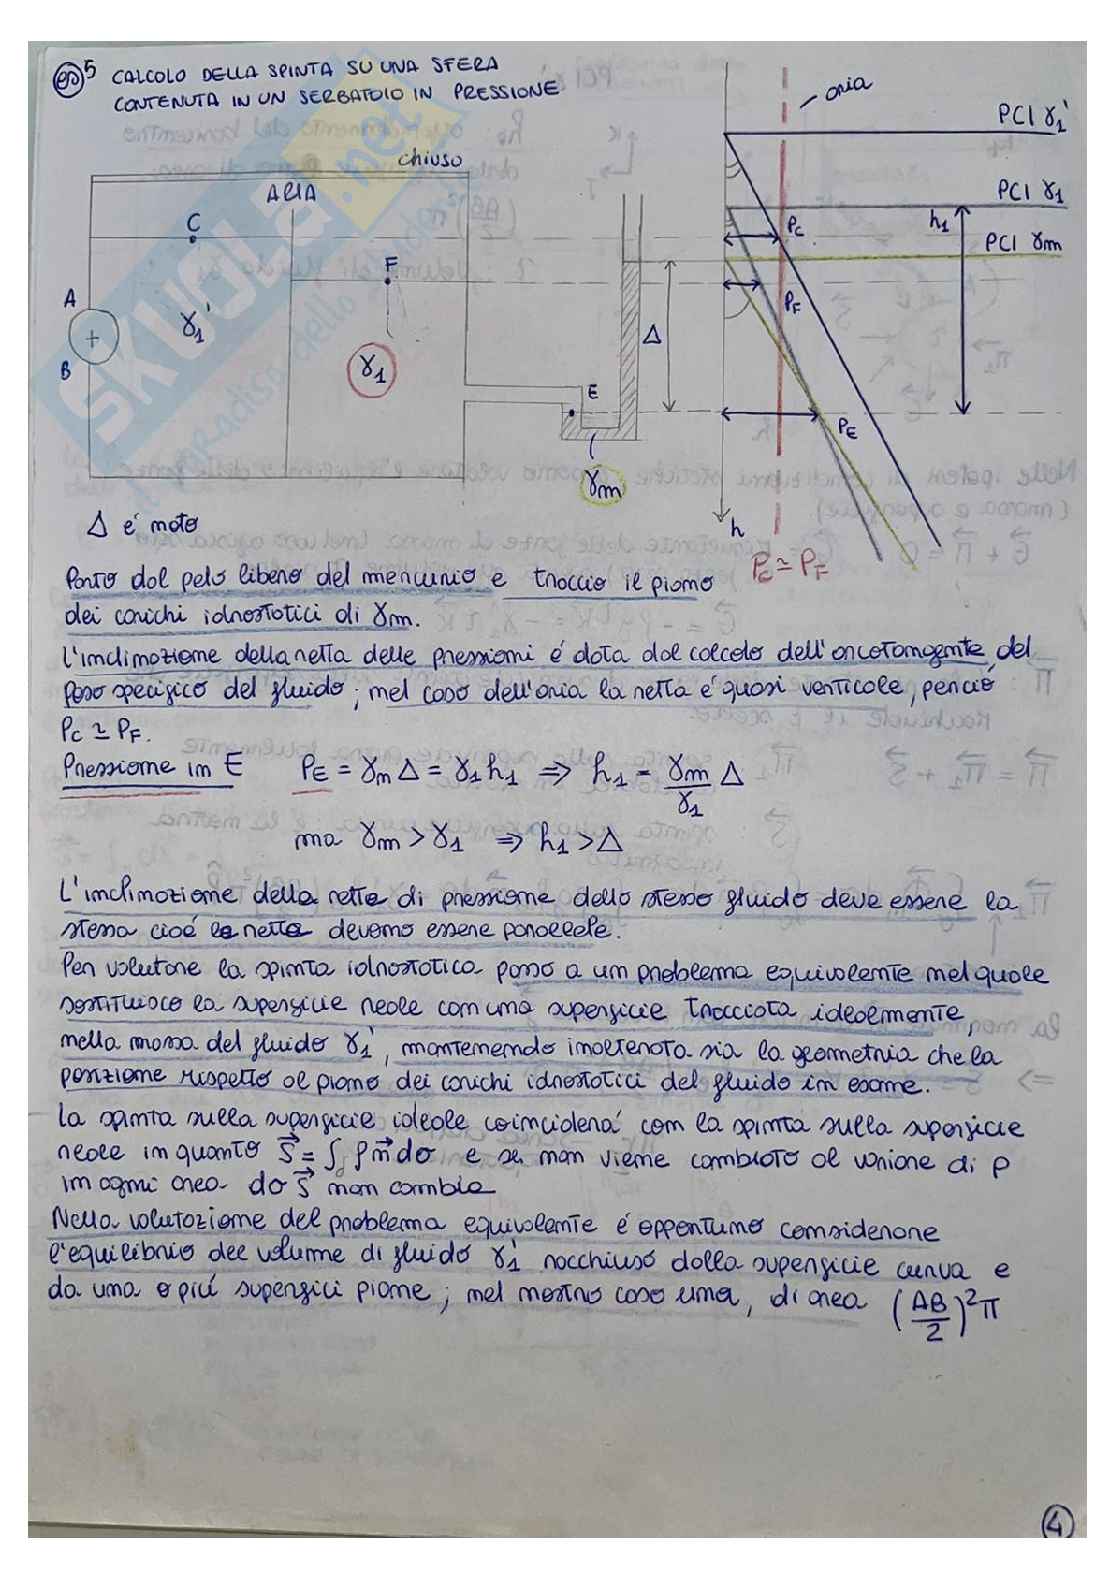 es 5 CALCOLO DELLA SPINTA SU UNA SFERA
CONTENUTA IN UN SERBATOIO IN PRESSIONE
aria
PCI γ1'
chiuso
ARIA
PCI γ1
C
Pc
h1
PCI γm
F
A
γ1'
PF
Δ
B
γ1
E
PE
γm
h
Δ é noto
PE ≃ PF
Parto dal pelo libero del mercurio e traccio il piano
dei carichi idrostatici di γm.
L'inclinazione della retta delle pressioni é data dal calcolo dell'arcotangente del
peso specifico del fluido; nel caso dell'aria la retta é quasi verticale, perció
Pc ≃ PF.
Pressione in E PE = γm Δ = γ1 h1 ⇒ h1 = γm/γ1 Δ
ma γm > γ1 ⇒ h1 > Δ
L'inclinazione della retta di pressione dello stesso fluido deve essere la
stessa cioé le rette devono essere parallele.
Per valutare la spinta idrostatica passo a un problema equivalente nel quale
sostituisco la superficie reale con una superficie tracciata idealmente
nella massa del fluido γ1', mantenendo inalterata sia la geometria che la
posizione rispetto al piano dei carichi idrostatici del fluido in esame.
La spinta sulla superficie ideale coinciderá con la spinta sulla superficie
reale in quanto S = ∫σ p n dσ e se non viene cambiato al variare di p
in ogni area dσ S non cambia
Nella valutazione del problema equivalente é opportuno considerare
l'equilibrio del volume di fluido γ1' racchiuso dalla superficie curva e
da una o piú superfici piane; nel nostro caso una, di area (AB/2)²π
4
SKUOLA.net
il paradiso dello studente